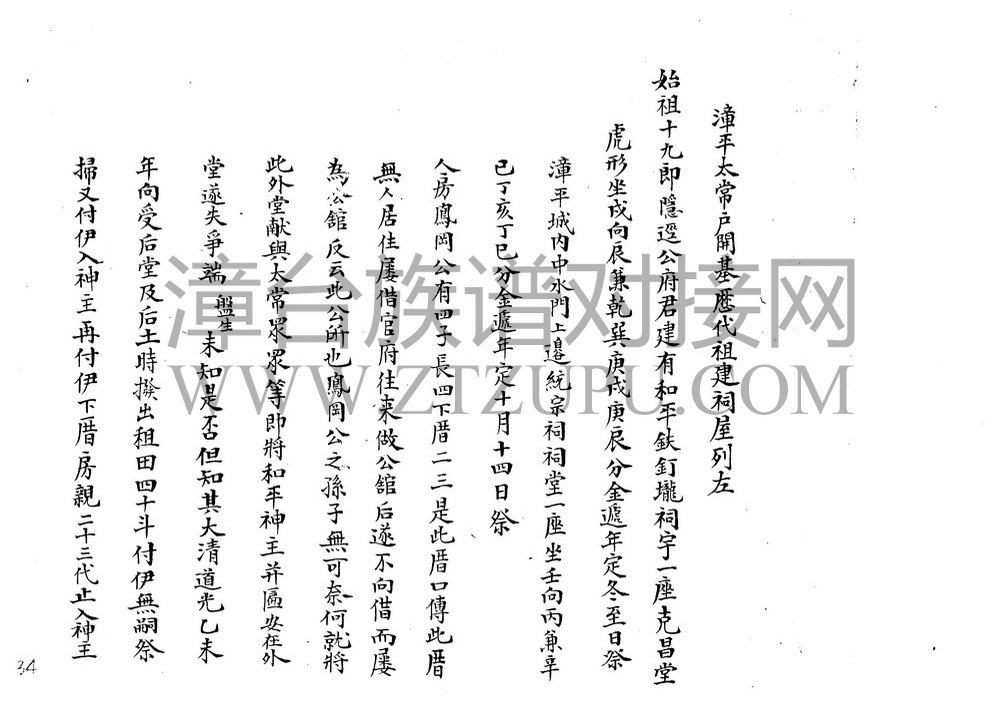 漳平太常户開基歷代祖建祠屋列左
始祖十九郎隱遯公府君建有和平鉄釘壠祠宇一座克昌堂
虎形坐戌向辰兼乾巽庚戌庚辰分金遞年定冬至日祭
漳平城内中水門上邉統宗祠祠堂一座坐壬向丙兼辛
巳丁亥丁巳分金遞年定十月十四日祭
人房鳳岡公有四子長四下厝二三是此厝口傳此厝
無人居住屢借官府往来做公舘后遂不向借而屢
為公舘反云此公所也鳳岡公之孫子無可奈何就將
此外堂献與太常眾眾等即將和平神主并匾安在外
堂遂失爭端盤生未知是否但知其大清道光乙未
年向受后堂及后土時撥出租田四十斗付伊無嗣祭
掃又付伊入神主再付伊下厝房親二十三代止入神主
34
漳台族谱对接网
WWW.ZTZUPU.COM